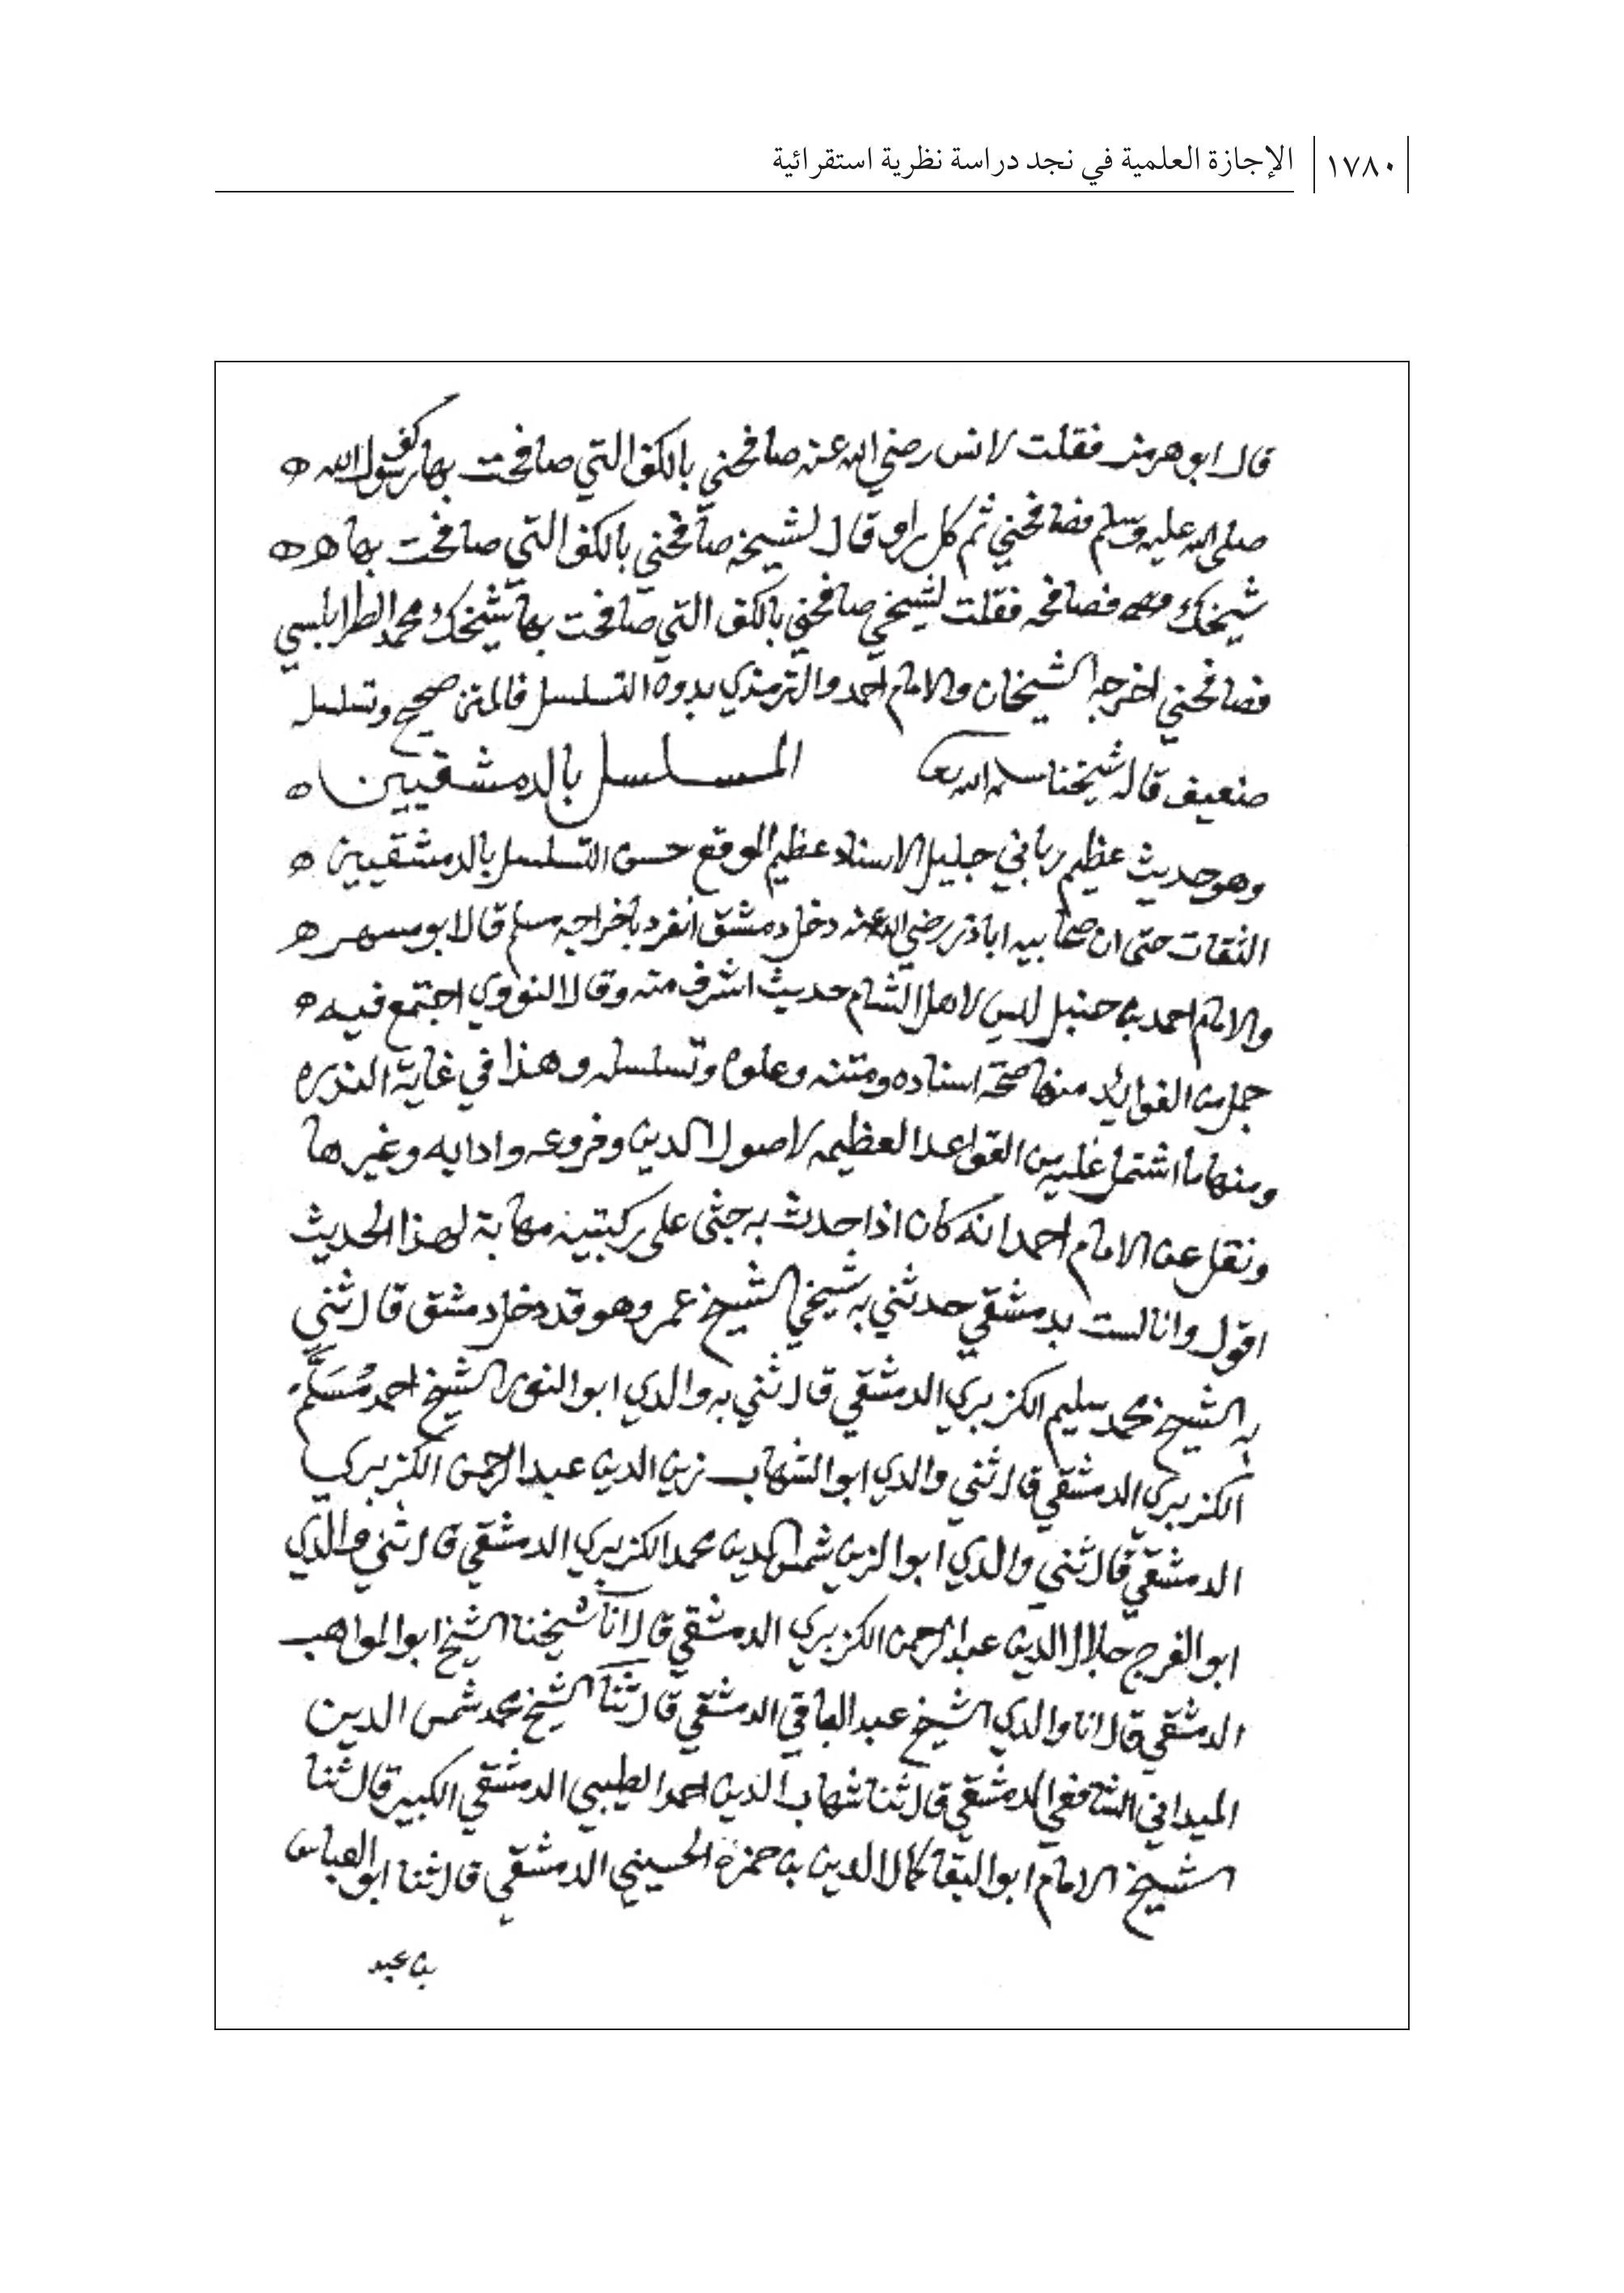 ١٧٨٠ الإجازة العلمية في نجد دراسة نظرية استقرائية
قال ابو هرمز فقلت لانس رضي الله عنه صافحني بالكف التي صافحت بها كف رسول الله ه
صلى الله عليه وسلم فصافحني ثم كل راو قال لشيخه صافحني بالكف التي صافحت بها ه ه
شيخك فصافحه فقلت لشيخي صافحني بالكف التي صافحت بها شيخك محمد الطرابلسي
فصافحني اخرجه الشيخان والامام احمد والترمذي بدون التسلسل فالمتن صحيح وتسلسل
ضعيف قاله شيخنا سلمه الله تعا المسلسل بالدمشقيين ه
وهو حديث عظيم رباني جليل الاسناد عظيم الموقع حسن التسلسل بالدمشقيين ه
الثقات حتى ان صحابيه اباذر رضي الله عنه دخل دمشق انفرد باخراجه مسلم قال ابو مسهر ه
والامام احمد بن حنبل ليس لاهل الشام حديث اشرف منه وقال النووي اجتمع فيه ه
جمل من الفوائد منها صحة اسناده ومتنه وعلوه وتسلسله وهذا في غاية الندره
ومنها ما اشتمل عليه من القواعد العظيمه لاصول الدين وفروعه وادابه وغيرها
ونقل عن الامام احمد انه كان اذا حدث به جثى على ركبتيه مهابة لهذا الحديث
اقول وانا لست بدمشقي حدثني به شيخي الشيخ عمر وهو قد دخل دمشق قال ثني
به الشيخ محمد سليم الكزبري الدمشقي قال ثني به والدي ابو النور الشيخ احمد مُسَلَّم
الكزبري الدمشقي قال ثني والدي ابو الشهاب زين الدين عبد الرحمن الكزبري
الدمشقي قال ثني والدي ابو الزين شمس الدين محمد الكزبري الدمشقي قال ثني والدي
ابو الفرج جلال الدين عبد الرحمن الكزبري الدمشقي قال انا شيخنا الشيخ ابو المواهب
الدمشقي قال انا والدي الشيخ عبد الباقي الدمشقي قال ثنا الشيخ محمد شمس الدين
الميداني الشافعي الدمشقي قال ثنا شهاب الدين احمد الطيبي الدمشقي الكبير قال ثنا
الشيخ الامام ابو البقا كمال الدين بن حمزة الحسيني الدمشقي قال ثنا ابو العباس
بن عبد